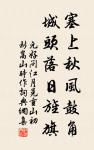 塞上秋風鼓角
城頭落日旌旗
元好問江月晃重山初
到嵩山時作詞典網集